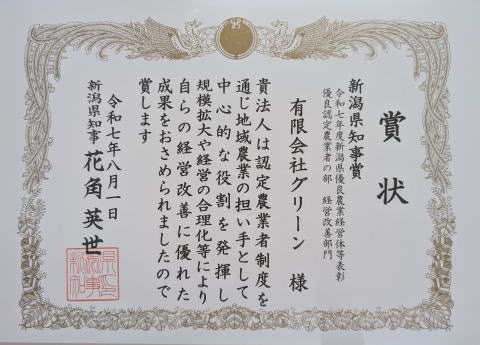 賞状
新潟県知事賞
令和七年度新潟県優良農業経営体等表彰
優良認定農業者の部 経営改善部門
有限会社グリーン 様
貴法人は認定農業者制度を
通じ地域農業の担い手として
中心的な役割を発揮し
規模拡大や経営の合理化等により
自らの経営改善に優れた
成果をおさめられましたので
賞します
令和七年八月一日
新潟県知事 花角英世